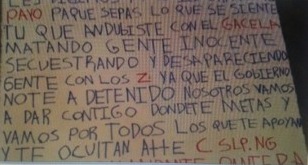 PAYO PARQUE SEPAS LO QUE SE SIENTE
TU QUE ANDUBISTE CON EL GACELA
MATANDO GENTE INOCENTE
SECUESTRANDO Y DESAPARECIENDO
GENTE CON LOS Z. YA QUE EL GOBIERNO
NOTE A DETENIDO NOSOTROS VAMOS
A DAR CONTIGO DONDETE METAS Y
VAMOS POR TODOS LOS QUE TE APOYAN
Y TE OCULTAN ATTE C. SLP. NG